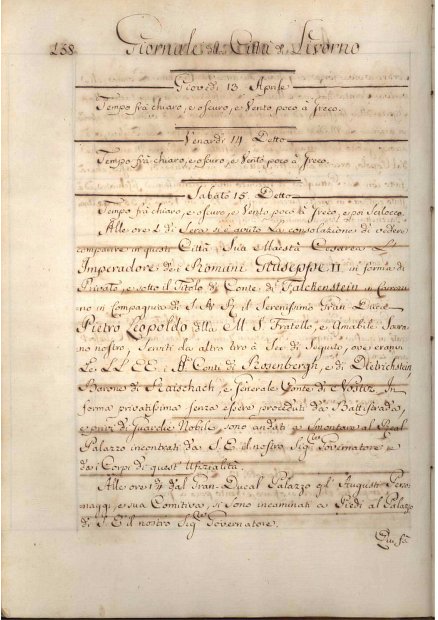 138.
Giornale della Città di Livorno
Giovedì 13 Aprile
Tempo frà chiaro, e oscuro, e Vento poco à Greco.
Venardì 14 Detto
Tempo frà chiaro, e oscuro, e Vento poco à Greco.
Sabato 15. Detto
Tempo frà chiaro, e oscuro, e Vento poco à Greco, e poi Scilocco.
Alle ore 2 di Sera si è avuto La consolazione di vedere
comparire in questa Città Sua Maestà Cesarea L'
Imperadore de i Romani Giuseppe II in forma di
Privato, e sotto il Titolo di Conte di Falckenstein in
in Compagnia di S. A. R. il Serenissimo Gran Duca
Pietro Leopoldo della M. S. Fratello, e Amabile Sovra-
no nostro, Serviti da altro tiro à Sei di Seguito, ove erano
Le LL. EE. i Conti di Rosenbergh, e di Dietrichstein,
Barone di Reischach, e Generale Conte di Nostiz. In
forma privatissima senza essere preceduti da Battistrada,
e privi di Guardie Nobili, sono andati à smontare al Real
Palazzo incontrati da S. E. il nostro Sig.re Governatore e
dai Corpi di quest' Ufizialità
Alle ore dal Gran-Ducal Palazzo gl' Augusti Perso-
naggi, e sua Comitiva, si sono incaminati a Piedi al Palazzo
di S. E. il nostro Sig.re Governatore.